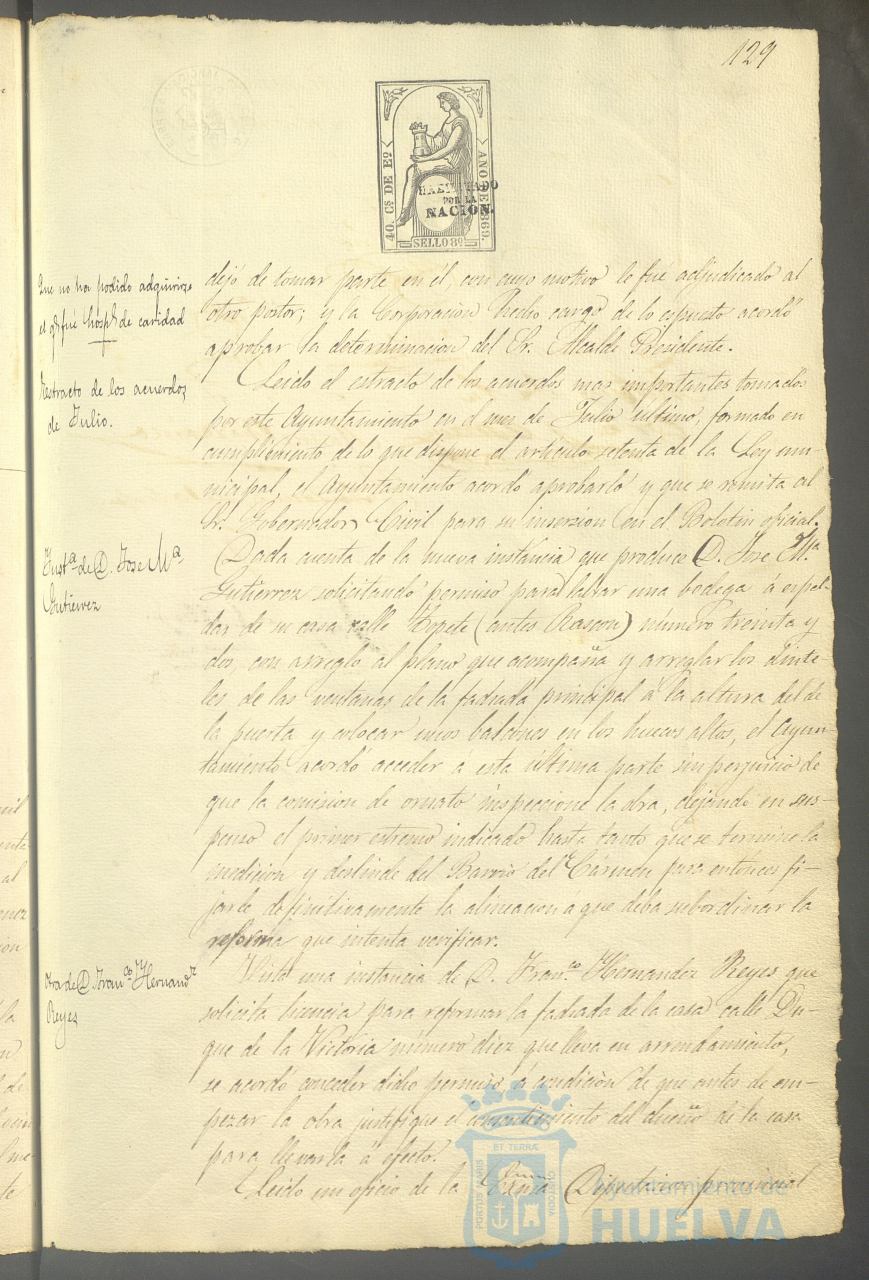 129
40. Cs DE Eo
AÑO DE 1869.
HABILITADO
POR LA
NACION.
SELLO 8º
Que no ha podido adquirirse
el qe fué hospl de caridad
dejó de tomar parte en él, con cuyo motivo le fué adjudicado al
otro postor; y la Corporacion hecho cargo de lo espuesto acordó
aprobar la determinacion del Sr. Alcalde Presidente.
Estracto de los acuerdos
de Julio.
Leido el estracto de los acuerdos mas importantes tomados
por este Ayuntamiento en el mes de Julio último, formado en
cumplimiento de lo que dispone el artículo setenta de la Ley mu-
nicipal, el Ayuntamiento acordó aprobarlo y que se remita al
Sr. Gobernador Civil para su insercion en el Boletin oficial.
Instª de D. Jose Mª
Gutierrez
Dada cuenta de la nueva instancia que produce D. Jose Mª
Gutierrez solicitando permiso para labrar una bodega á espal-
das de su casa calle Topete (antes Rascon) número treinta y
dos, con arreglo al plano que acompaña y arreglar los dinte-
les de las ventanas de la fachada principal á la altura del de
la puerta y colocar unos balcones en los huecos altos, el Ayun-
tamiento acordó acceder a esta última parte sin perjuicio de
que la comision de ornato inspeccione la obra, dejando en sus-
penso el primer estremo indicado hasta tanto que se termine la
medicion y deslinde del Barrio del Cármen para entonces fi-
jarle definitivamente la alineacion á que deba subordinar la
reforma que intenta verificar.
Otra de D. Franco Hernandz
Reyes
Vista una instancia de D. Franco Hernandez Reyes que
solicita licencia para reformar la fachada de la casa calle Du-
que de la Victoria número diez que lleva en arrendamiento,
se acordó conceder dicho permiso á condicion de que antes de em-
pezar la obra justifique el consentimiento del dueño de la casa
para llevarla á efecto.
Leido un oficio de la Excma Diputacion provincial
ET TERRÆ
PORTUS MARIS
CUSTODIA
Ayuntamiento de
HUELVA